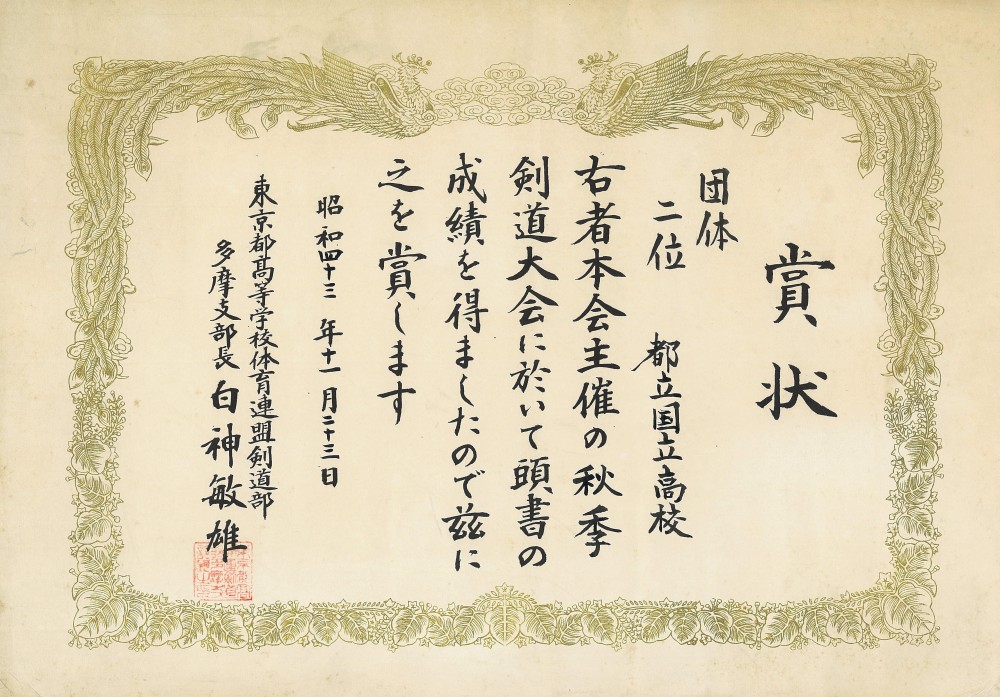 賞状
団体
二位
都立国立高校
右者本会主催の秋季
剣道大会に於いて頭書の
成績を得ましたので茲に
之を賞します
昭和四十三年十一月二十三日
東京都高等学校体育連盟剣道部
多摩支部長 白神敏雄